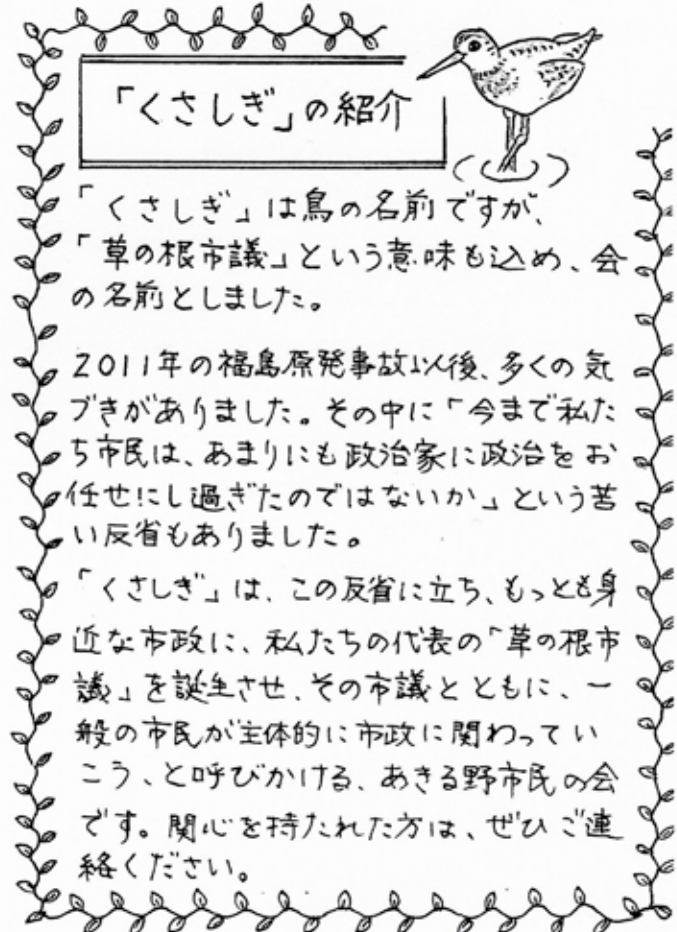 「くさしぎ」の紹介
「くさしぎ」は鳥の名前ですが、
「草の根市議」という意味も込め、会
の名前としました。
2011年の福島原発事故以後、多くの気
づきがありました。その中に「今まで私た
ち市民は、あまりにも政治家に政治をお
任せにし過ぎたのではないか」という苦
い反省もありました。
「くさしぎ」は、この反省に立ち、もっとも身
近な市政に、私たちの代表の「草の根市
議」を誕生させ、その市議とともに、一
般の市民が主体的に市政に関わってい
こう、と呼びかける、あきる野市民の会
です。関心を持たれた方は、ぜひご連
絡ください。